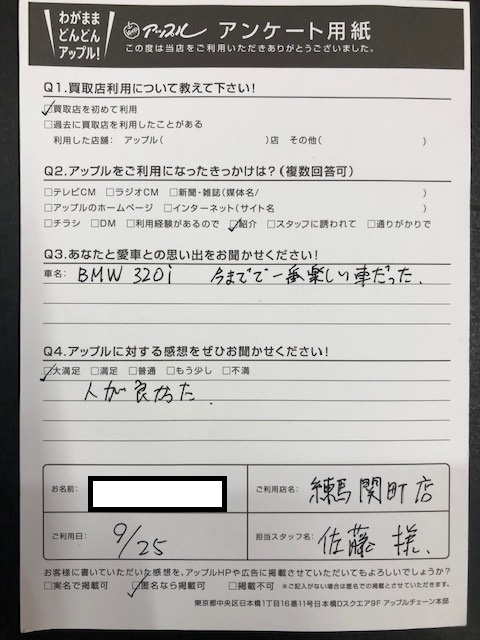 わがまま
どんどん
アップル!
アップル アンケート用紙
この度は当店をご利用いただきありがとうございました。
Q1.買取店利用について教えて下さい!
☑買取店を初めて利用
□過去に買取店を利用したことがある
利用した店舗: アップル( )店 その他( )
Q2.アップルをご利用になったきっかけは?(複数回答可)
□テレビCM □ラジオCM □新聞・雑誌(媒体名/ )
□アップルのホームページ □インターネット(サイト名 )
□チラシ □DM □利用経験があるので ☑紹介 □スタッフに誘われて □通りがかりで
Q3.あなたと愛車との思い出をお聞かせください!
車名: BMW 320i 今までで一番楽しい車だった.
Q4.アップルに対する感想をぜひお聞かせください!
☑大満足 □満足 □普通 □もう少し □不満
人が良かった.
お名前: ご利用店名: 練馬関町店
ご利用日: 9/25 担当スタッフ名: 佐藤 様.
お客様に書いていただいた感想を、アップルHPや広告に掲載させていただいてもよろしいでしょうか?
□実名で掲載可 ☑匿名なら掲載可 □掲載不可 ※ご記入がない場合は匿名での掲載とさせていただきます。
東京都中央区日本橋1丁目16番11号日本橋Dスクエア9F アップルチェーン本部